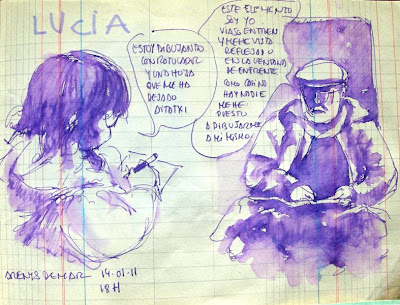 LUCÍA
ESTOY DIBUJANTO
CON ROTULADOR
Y UNA HOJA
QUE ME HA
DEJADO
AITATXI
ESTE ELEMENTO
SOY YO.
VIAJO EN TREN
Y ME HE VISTO
REFLEJADO
EN LA VENTANA
DE ENFRENTE
COMO
HAY NADIE
ME HE
PUESTO
A DIBUJARME
A MI MISMO.
ARENYS DE MAR
14-01-11
18H